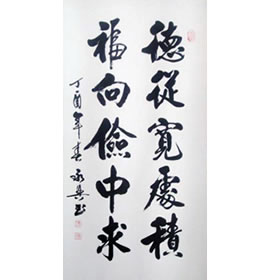 德從寬處積
福向儉中求
丁酉年春